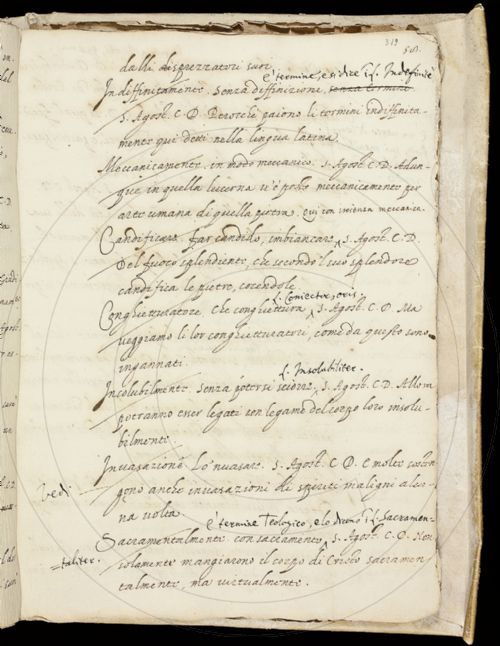 319
dalli disprezzatori suoi.
è termine, e si dice Lq. Indefinitè
Indiffinitamente. Senza diffinizione, senza termine
S. Agost. C. D. Perochè paiono li termini indiffinita-
mente qui detti nella lingua latina.
Meccanicamente. in modo meccanico. S. Agost. C. D. Adun-
que in quella lucerna vi è posto meccanicamente per
arte umana di quella pietra. qui con scienza meccanica.
Candificare. far candido, imbiancare. S. Agost. C. D.
Del fuoco splendiente, che secondo 'l suo splendore
candifica le pietre, cocendole.
L. Coniector, oris.
Conghietturatore. Che conghiettura. S. Agost. C. D. Ma
veggiamo li lor conghietturatori, come da questo sono
ingannati.
L. Insolubiliter.
Insolubilmente. Senza potersi sciorre. S. Agost. C. D. Allora
potranno esser legati con legame del corpo loro insolu-
bilmente.
Invasazione. Lo 'nvasare. S. Agost. C. D. E molte
gono anche invasazioni di spiriti maligni alcu-
vedi
na volta.
è termine Teologico, e lo dicono i L. Sacramen-
Sacramentalmente. con sacramento. S. Agost. C. D. Non
=taliter.
solamente mangiarono il corpo di Cristo sacramen-
talmente, ma virtualmente.